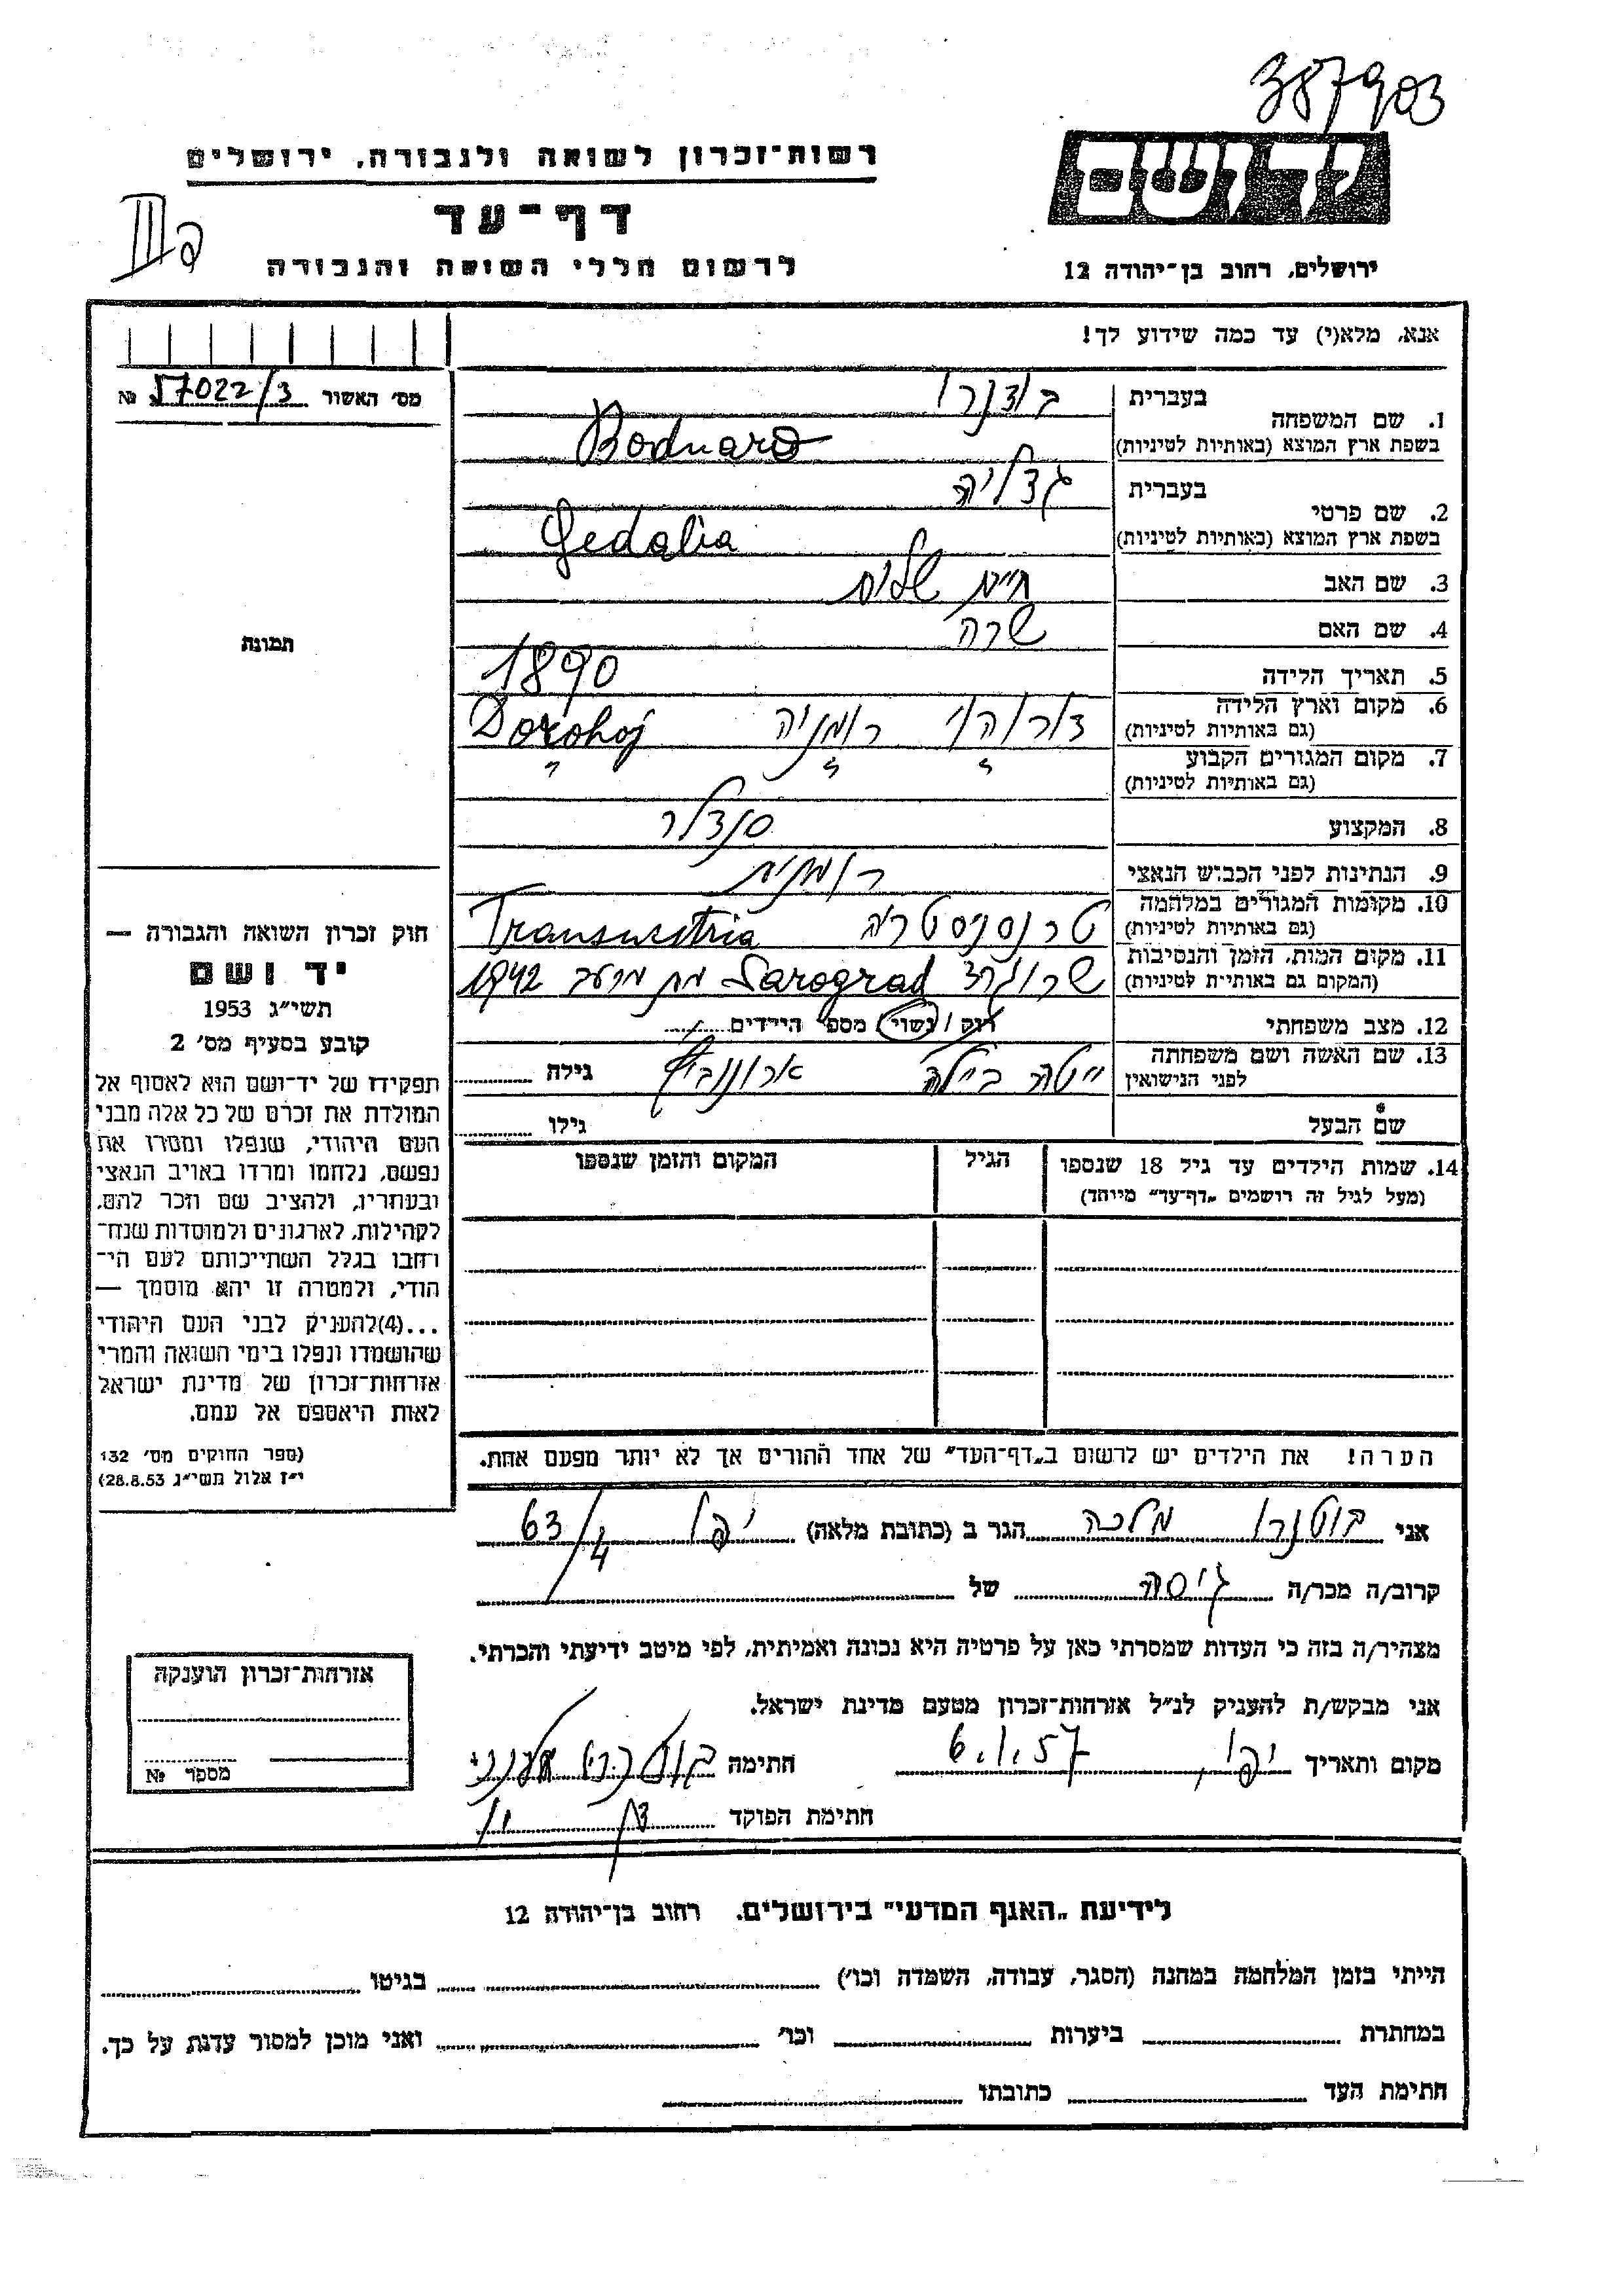 387903
רשות־זכרון לשואה ולגבורה, ירושלים
יד ושם
דף־עד
לרשום חללי השואה והגבורה
ירושלים, רחוב בן־יהודה 12
אנא, מלא(י) עד כמה שידוע לך!
מס׳ האשור 57022/3 №
1. שם המשפחה
בעברית בודנרו
בשפת ארץ המוצא (באותיות לטיניות) Bodnaro
2. שם פרטי
בעברית גדליה
בשפת ארץ המוצא (באותיות לטיניות) Gedalia
3. שם האב חיים שלום
4. שם האם שרה
5. תאריך הלידה 1890
6. מקום וארץ הלידה דורוהוי רומניה Dorohoj
(גם באותיות לטיניות)
7. מקום המגורים הקבוע
(גם באותיות לטיניות)
8. המקצוע סנדלר
9. הנתינות לפני הכבוש הנאצי רומנית
10. מקומות המגורים במלחמה טרנסניסטריה Transnistria
(גם באותיות לטיניות)
11. מקום המות, הזמן והנסיבות שרוגרד Sarograd מת מרעב 1942
(המקום גם באותיות לטיניות)
12. מצב משפחתי רוק / נשוי מספר הילדים
13. שם האשה ושם משפחתה ייטה ביילה גילה
לפני הנישואין
שם הבעל גילו
14. שמות הילדים עד גיל 18 שנספו הגיל המקום והזמן שנספו
(מעל לגיל זה רושמים „דף־עד” מיוחד)
הערה! את הילדים יש לרשום ב„דף־העד” של אחד ההורים אך לא יותר מפעם אחת.
תמונה
חוק זכרון השואה והגבורה —
יד ושם
תשי״ג 1953
קובע בסעיף מס׳ 2
תפקידו של יד־ושם הוא לאסוף אל
המולדת את זכרם של כל אלה מבני
העם היהודי, שנפלו ומסרו את
נפשם, נלחמו ומרדו באויב הנאצי
ובעוזריו, ולהציב שם וזכר להם,
לקהילות, לארגונים ולמוסדות שנח־
רחבו בגלל השתייכותם לעם הי־
הודי, ולמטרה זו יהא מוסמך —
...(4)להעניק לבני העם היהודי
שהושמדו ונפלו בימי השואה והמרי
אזרחות־זכרון של מדינת ישראל
לאות היאספם אל עמם.
(ספר החוקים מס׳ 132
י״ז אלול תשי״ג 28.8.53)
אני בוטנרו מלכה הגר ב (כתובת מלאה) יפו 63/4
קרוב/ה מכר/ה גיסה של
מצהיר/ה בזה כי העדות שמסרתי כאן על פרטיה היא נכונה ואמיתית, לפי מיטב ידיעתי והכרתי.
אני מבקש/ת להעניק לנ״ל אזרחות־זכרון מטעם מדינת ישראל.
מקום ותאריך יפו, 6.1.57 חתימה
חתימת הפוקד
אזרחות־זכרון הוענקה
מספר №
לידיעת „האגף המדעי” בירושלים. רחוב בן־יהודה 12
הייתי בזמן המלחמה במחנה (הסגר, עבודה, השמדה וכו׳) בגיטו
במחתרת ביערות וכו׳ ואני מוכן למסור עדות על כך.
חתימת העד כתובתו